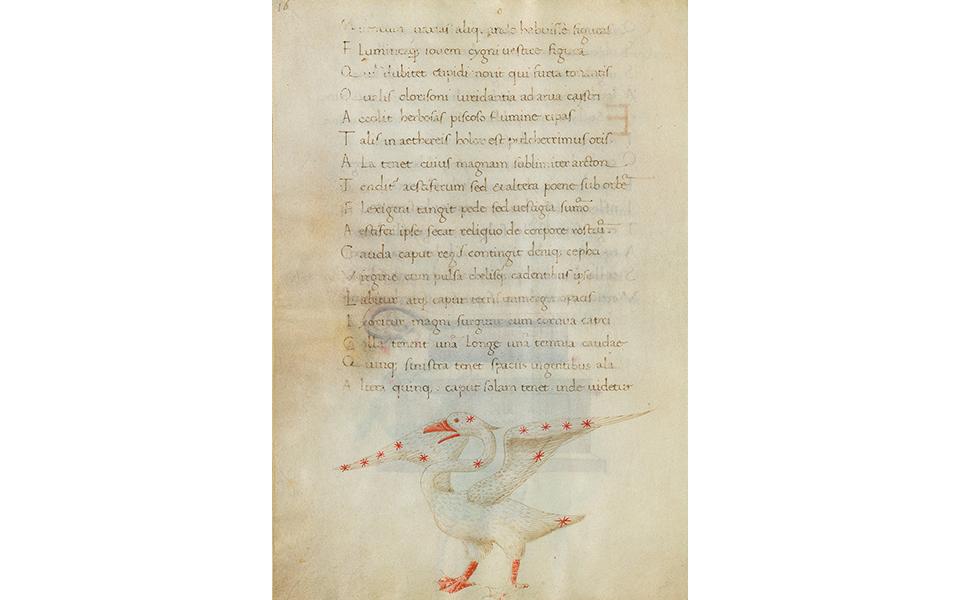 16
aliq, ande figuras
Flumineaq, iovem cygni vestire figura
Quis dubitet cupidi norit qui furta tonantis
Qualis olorisoni viridantia ad arva caistri
Accolit herbosas piscoso flumine ripas
Talis in aethereis holor est pulcherrimus oris
Ala tenet cuius magnam sublimiter arcton
Tendit aestiferum sed et altera poene sub orbē
Flexigeni tangit pede sed vestigia sumō
Aestifer ipse secat reliquo de corpore rostrū
Cauda caput regis contingit deniq, cephei
Virgine cum pulsa chelisq, cadentibus ipse
Labitur atq, caput terris immergit opacis
Exoritur magni surgunt cum cornua capri
Stella tenent unā longe unā tenvia caudae
Quinq, sinistra tenet spaciis ingentibus ala
Altera quinq, caput solam tenet unde videtur